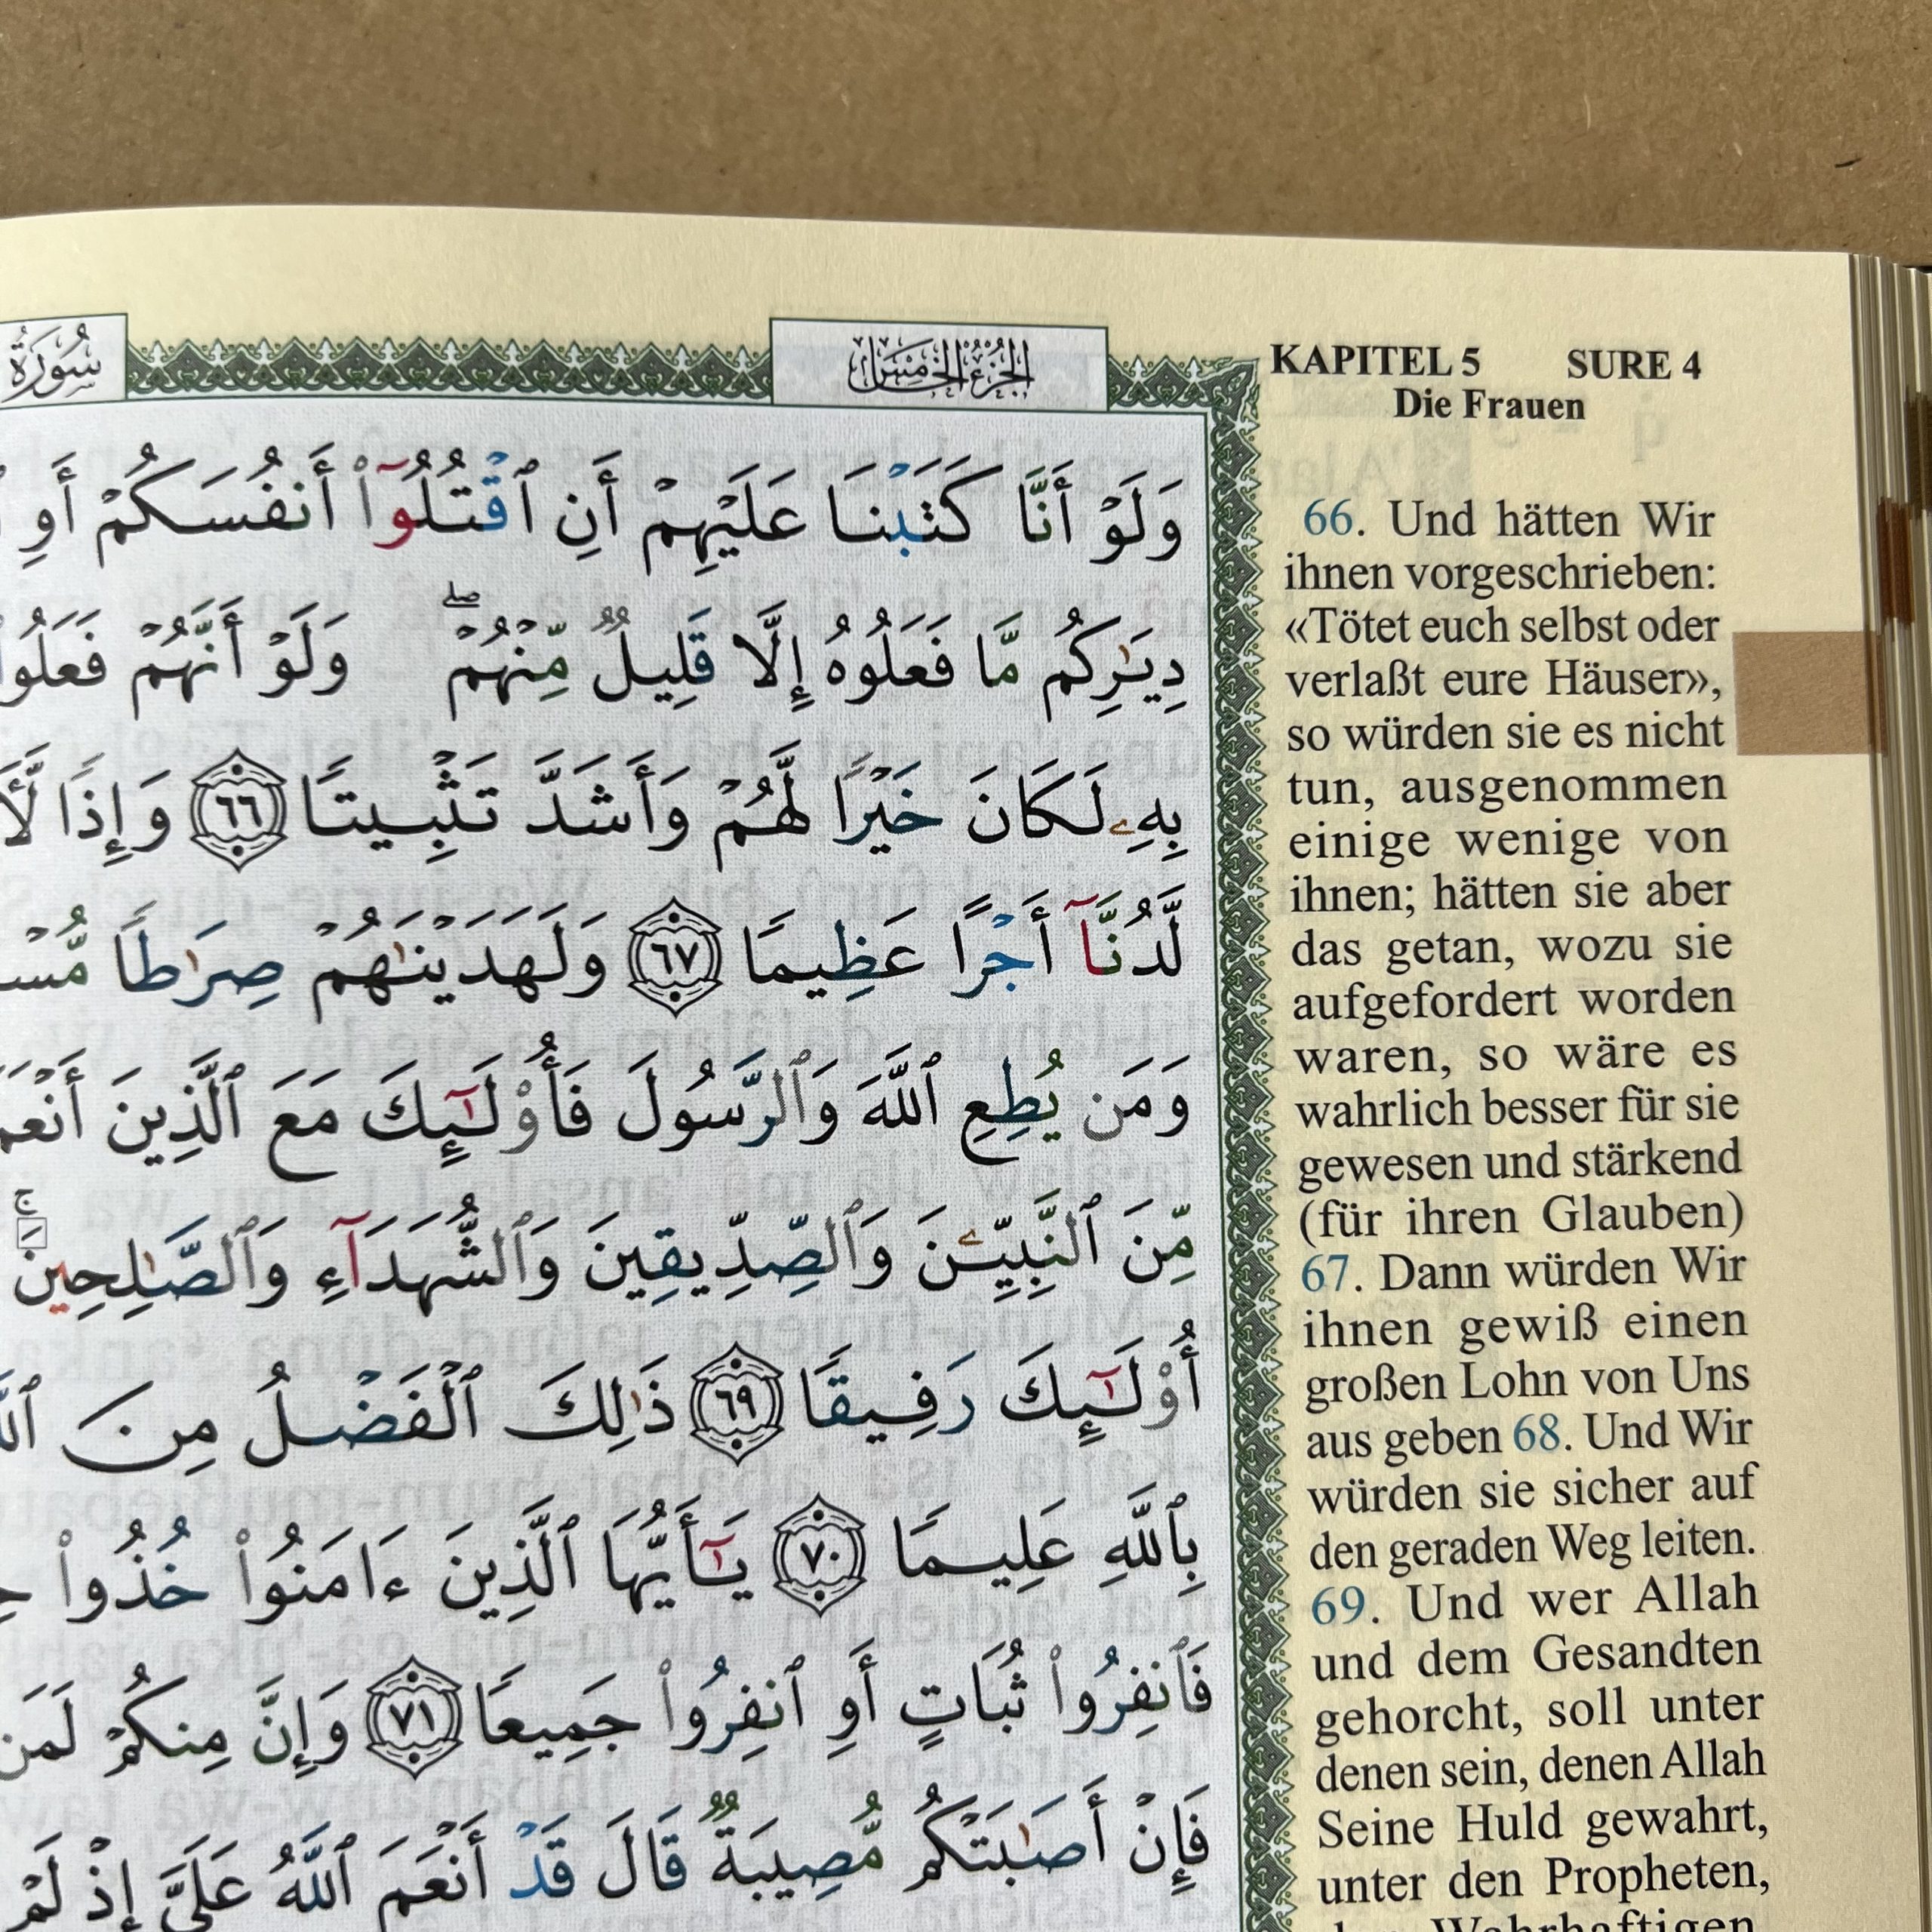 سُورَةُ
الجُزْءُ الخَامِسُ
وَلَوْ أَنَّا كَتَبْنَا عَلَيْهِمْ أَنِ ٱقْتُلُوٓا۟ أَنفُسَكُمْ أَوِ
دِيَـٰرِكُم مَّا فَعَلُوهُ إِلَّا قَلِيلٌ مِّنْهُمْ ۖ وَلَوْ أَنَّهُمْ فَعَلُوا
بِهِۦ لَكَانَ خَيْرًا لَّهُمْ وَأَشَدَّ تَثْبِيتًا ٦٦ وَإِذًا
لَّدُنَّآ أَجْرًا عَظِيمًا ٦٧ وَلَهَدَيْنَـٰهُمْ صِرَٰطًا
وَمَن يُطِعِ ٱللَّهَ وَٱلرَّسُولَ فَأُو۟لَـٰٓئِكَ مَعَ ٱلَّذِينَ
مِّنَ ٱلنَّبِيِّـۧنَ وَٱلصِّدِّيقِينَ وَٱلشُّهَدَآءِ وَٱلصَّـٰلِحِينَ ۚ
أُو۟لَـٰٓئِكَ رَفِيقًا ٦٩ ذَٰلِكَ ٱلْفَضْلُ مِنَ
بِٱللَّهِ عَلِيمًا ٧٠ يَـٰٓأَيُّهَا ٱلَّذِينَ ءَامَنُوا۟ خُذُوا۟
فَٱنفِرُوا۟ ثُبَاتٍ أَوِ ٱنفِرُوا۟ جَمِيعًا ٧١ وَإِنَّ مِنكُمْ لَمَن
فَإِنْ أَصَـٰبَتْكُم مُّصِيبَةٌ قَالَ قَدْ أَنْعَمَ ٱللَّهُ عَلَىَّ إِذْ لَمْ
KAPITEL 5 SURE 4
Die Frauen
66. Und hätten Wir
ihnen vorgeschrieben:
«Tötet euch selbst oder
verlaßt eure Häuser»,
so würden sie es nicht
tun, ausgenommen
einige wenige von
ihnen; hätten sie aber
das getan, wozu sie
aufgefordert worden
waren, so wäre es
wahrlich besser für sie
gewesen und stärkend
(für ihren Glauben)
67. Dann würden Wir
ihnen gewiß einen
großen Lohn von Uns
aus geben 68. Und Wir
würden sie sicher auf
den geraden Weg leiten.
69. Und wer Allah
und dem Gesandten
gehorcht, soll unter
denen sein, denen Allah
Seine Huld gewahrt,
unter den Propheten,
Wahrhaftigen